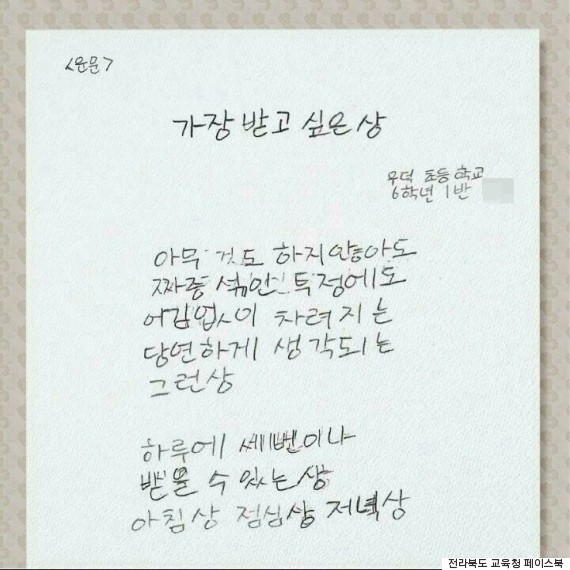 <운문>
가장 받고 싶은 상
우덕 초등학교
6학년 1반
아무 것도 하지않아도
짜증 섞인 투정에도
어김없이 차려지는
당연하게 생각되는
그런상
하루에 세번이나
받을 수 있는 상
아침상 점심상 저녁상
전라북도 교육청 페이스북